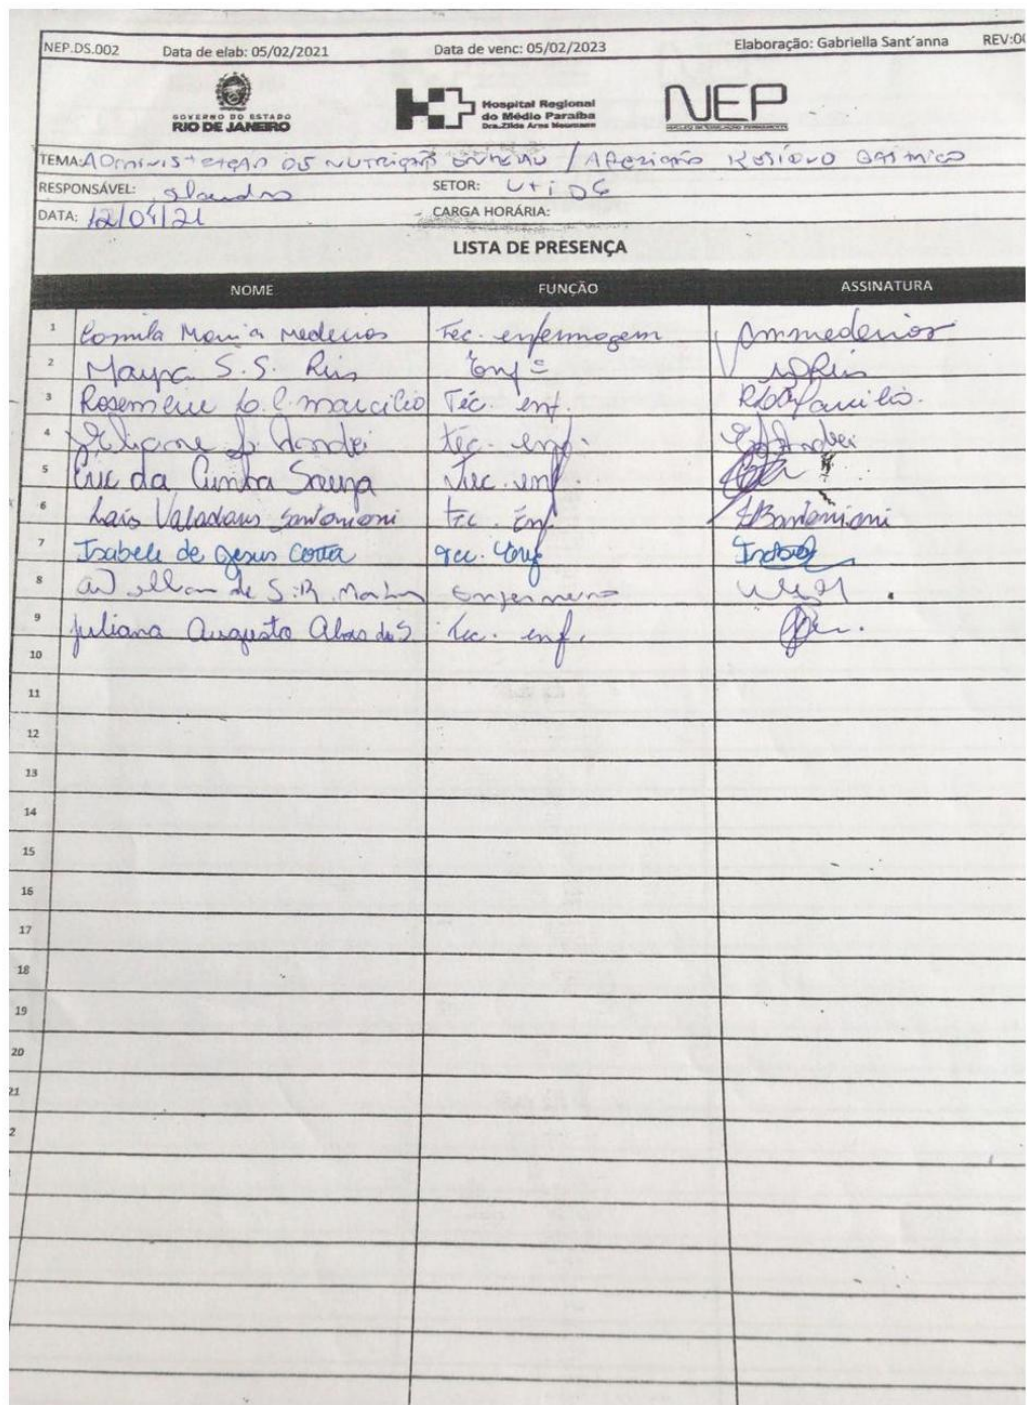 NEP.DS.002 Data de elab: 05/02/2021 Data de venc: 05/02/2023 Elaboração: Gabriella Sant´anna REV:00
GOVERNO DO ESTADO
RIO DE JANEIRO
Hospital Regional
do Médio Paraíba
Dra.Zilda Arns Neumann
NEP
NÚCLEO DE EDUCAÇÃO PERMANENTE
TEMA: Administração de nutrição enteral / Aferição Resíduo Gástrico
RESPONSÁVEL: SETOR: UTI
DATA: 12/04/21 CARGA HORÁRIA:
LISTA DE PRESENÇA
NOME FUNÇÃO ASSINATURA
1 Camila Maria Medeiros Tec. enfermagem Ammedeiros
2 Mayra S.S. Reis Enfª
3 Rosemeire Marcilio Téc. enf.
4 Téc. enf.
5 Eric da Cunha Souza Tec. enf.
6 Lais Valadares Tec. Enf
7 Isabele de Jesus Costa Tec. Enf Isabele
8 de S. R. Enfermeiro
9 Juliana Augusto Tec. enf.
10
11
12
13
14
15
16
17
18
19
20
21
2